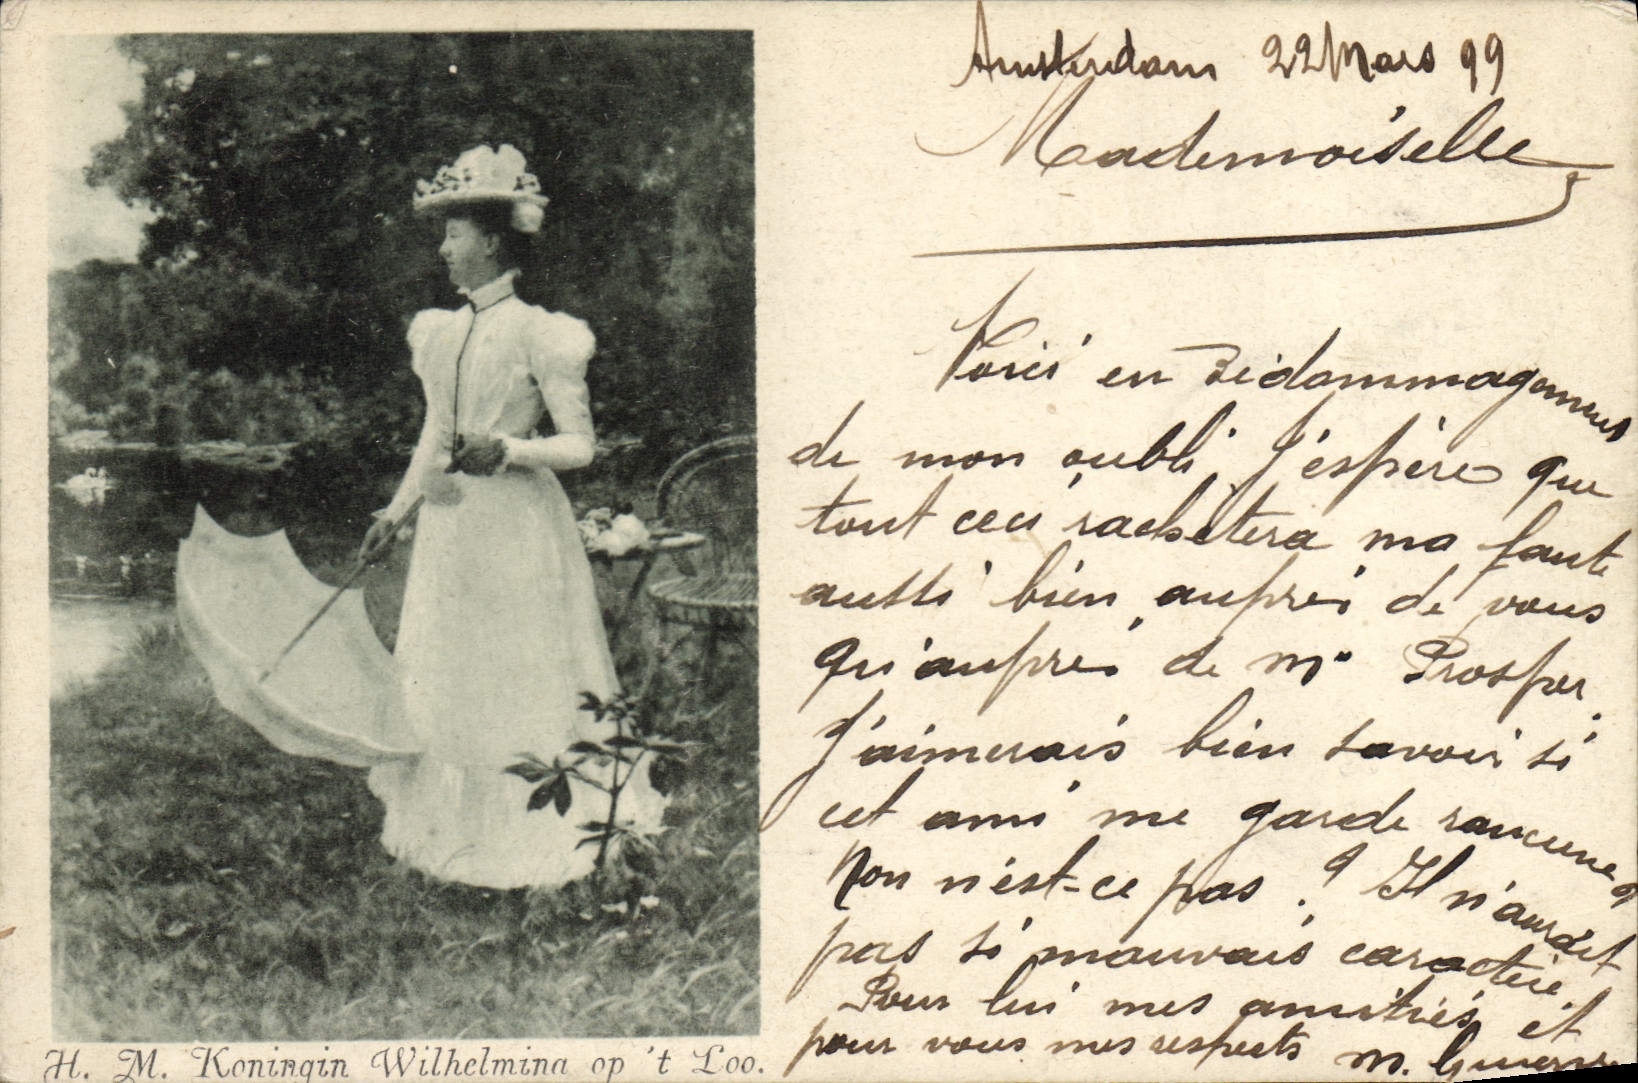 Amsterdam 22 Mars 99
Mademoiselle
Voici en dédommagement
de mon oubli, J'éspère que
tout ceci rachètera ma faute
aussi bien auprès de vous
qu'auprès de Mr Prosper.
J'aimerais bien savoir si
cet ami me garde rancune ?
Non n'est-ce pas ? Il n'aurait
pas si mauvais caractère.
Pour lui mes amitiés et
pour vous mes respects M.
H. M. Koningin Wilhelmina op 't Loo.